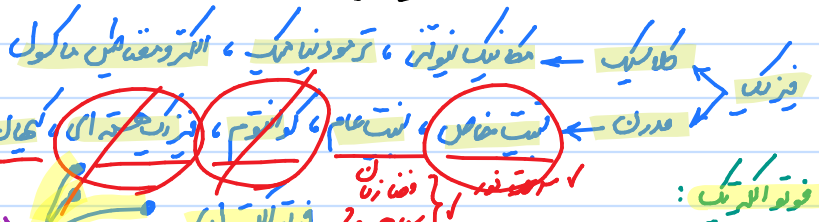 فیزیک
کلاسیک ← مکانیک نیوتنی، ترمودینامیک، الکترومغناطیس ماکسول
مدرن ← نسبیت خاص، نسبیت عام، کوانتوم، فیزیک هسته ای، کیهان
فضا زمان
فوتوالکتریک :